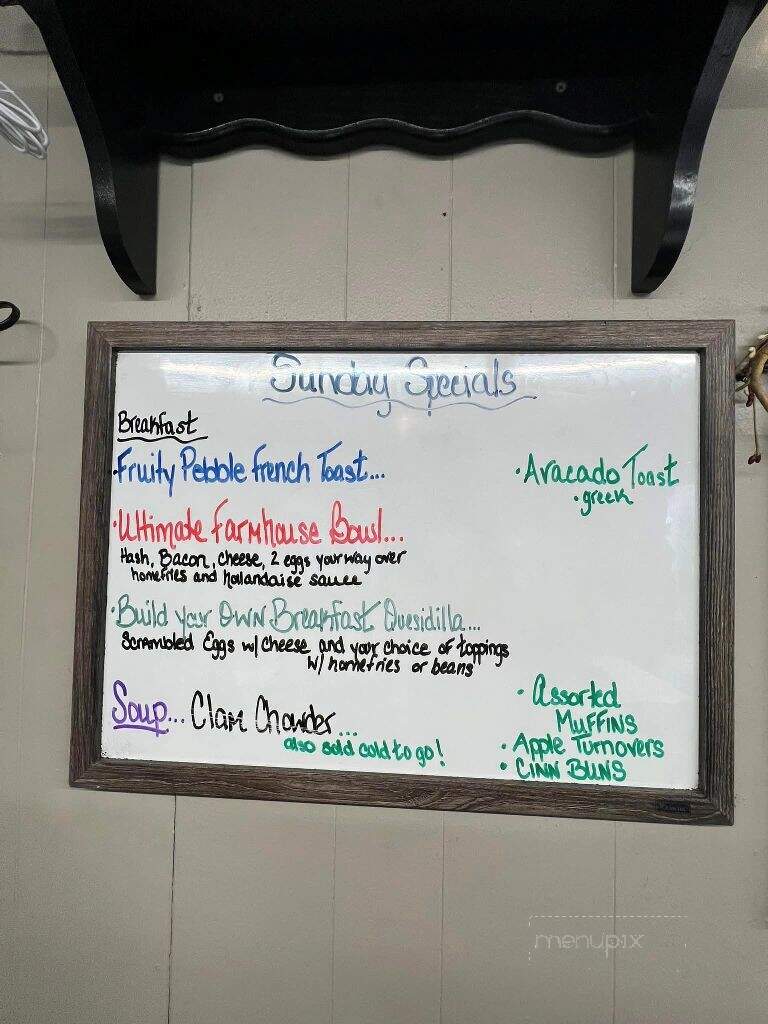 Sunday Specials
Breakfast
·Fruity Pebble French Toast...
·Ultimate Farmhouse Bowl...
Hash, Bacon, cheese, 2 eggs your way over
homefries and holandaise sauce
·Build your Own Breakfast Quesidilla...
Scrambled Eggs w/ cheese and your choice of toppings
w/ homefries or beans
Soup... Clam Chowder...
also sold cold to go!
·Avacado Toast
·greek
·Assorted
Muffins
·Apple Turnovers
·Cinn Buns
menupix